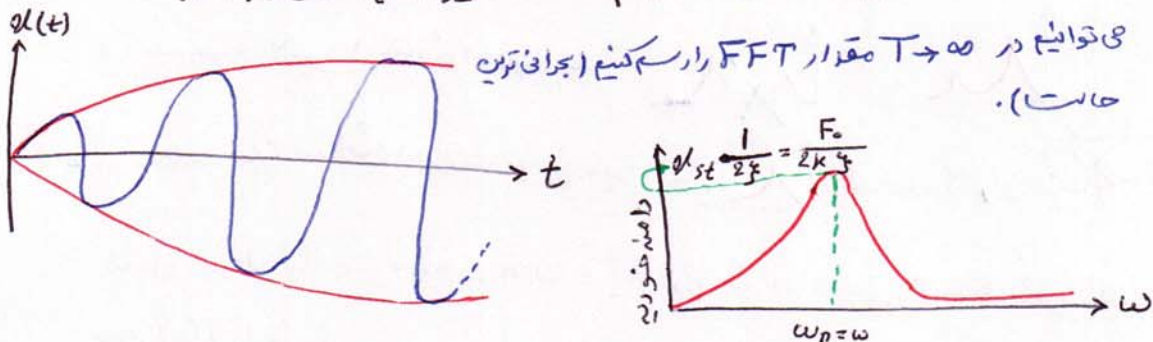 x(t)
می توانیم در T→∞ مقدار FFT را رسم کنیم (بحرانی ترین
حالت).
t
x_st · 1/2ξ = F₀/2kξ
ω
ω_n = ω